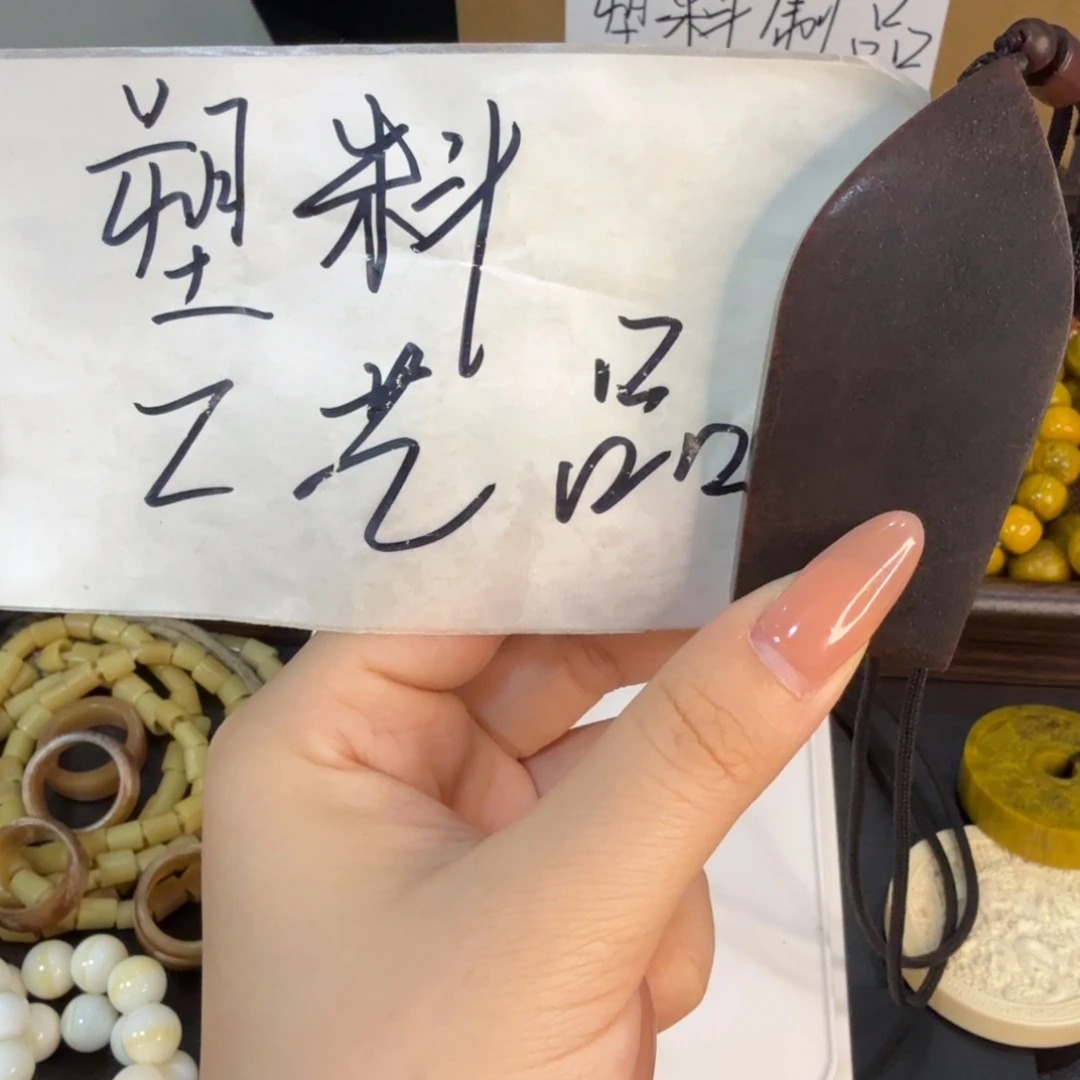 塑料制品
塑料
工艺品